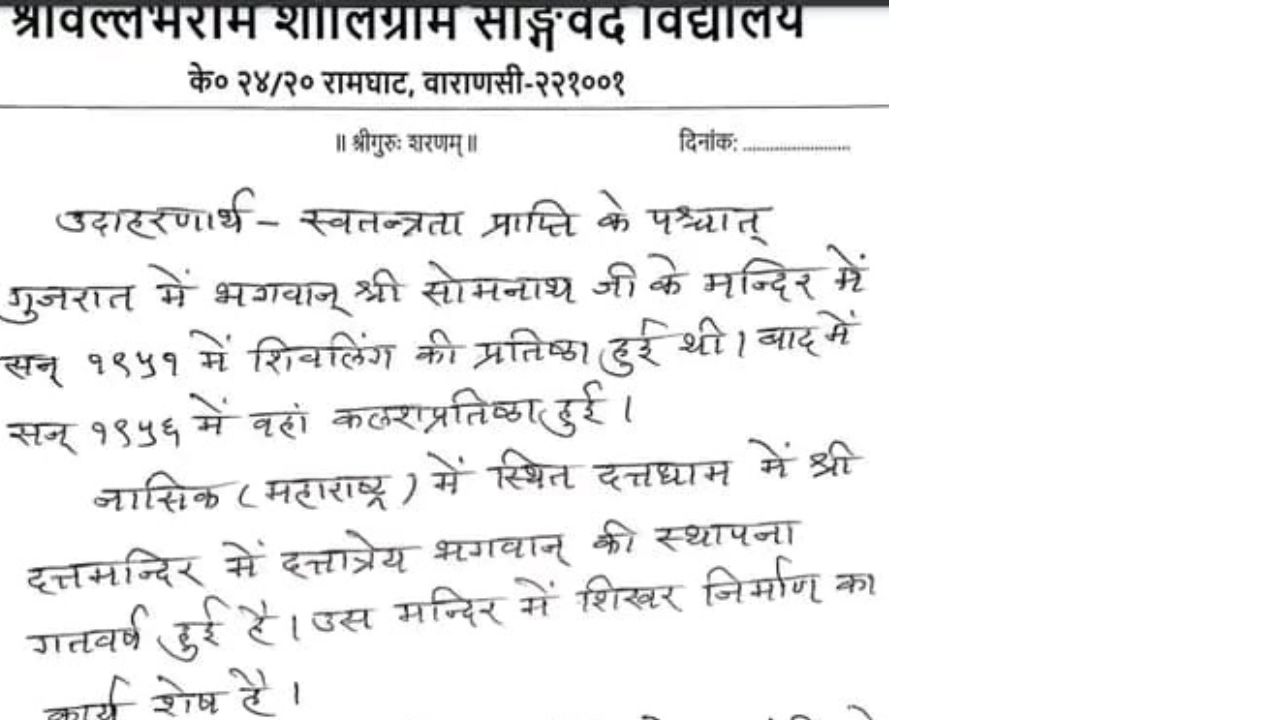 श्रीवल्लभराम शालिग्राम साङ्गवेद विद्यालय
के० २४/२० रामघाट, वाराणसी-२२१००१
॥ श्रीगुरुः शरणम् ॥ दिनांक: ........................
उदाहरणार्थ – स्वतन्त्रता प्राप्ति के पश्चात्
गुजरात में भगवान् श्री सोमनाथ जी के मन्दिर में
सन् १९५१ में शिवलिंग की प्रतिष्ठा हुई थी । बाद में
सन् १९५६ में वहां कलशप्रतिष्ठा हुई ।
नासिक (महाराष्ट्र) में स्थित दत्तधाम में श्री
दत्तमन्दिर में दत्तात्रेय भगवान् की स्थापना
गतवर्ष हुई है । उस मन्दिर में शिखर निर्माण का
कार्य शेष है ।